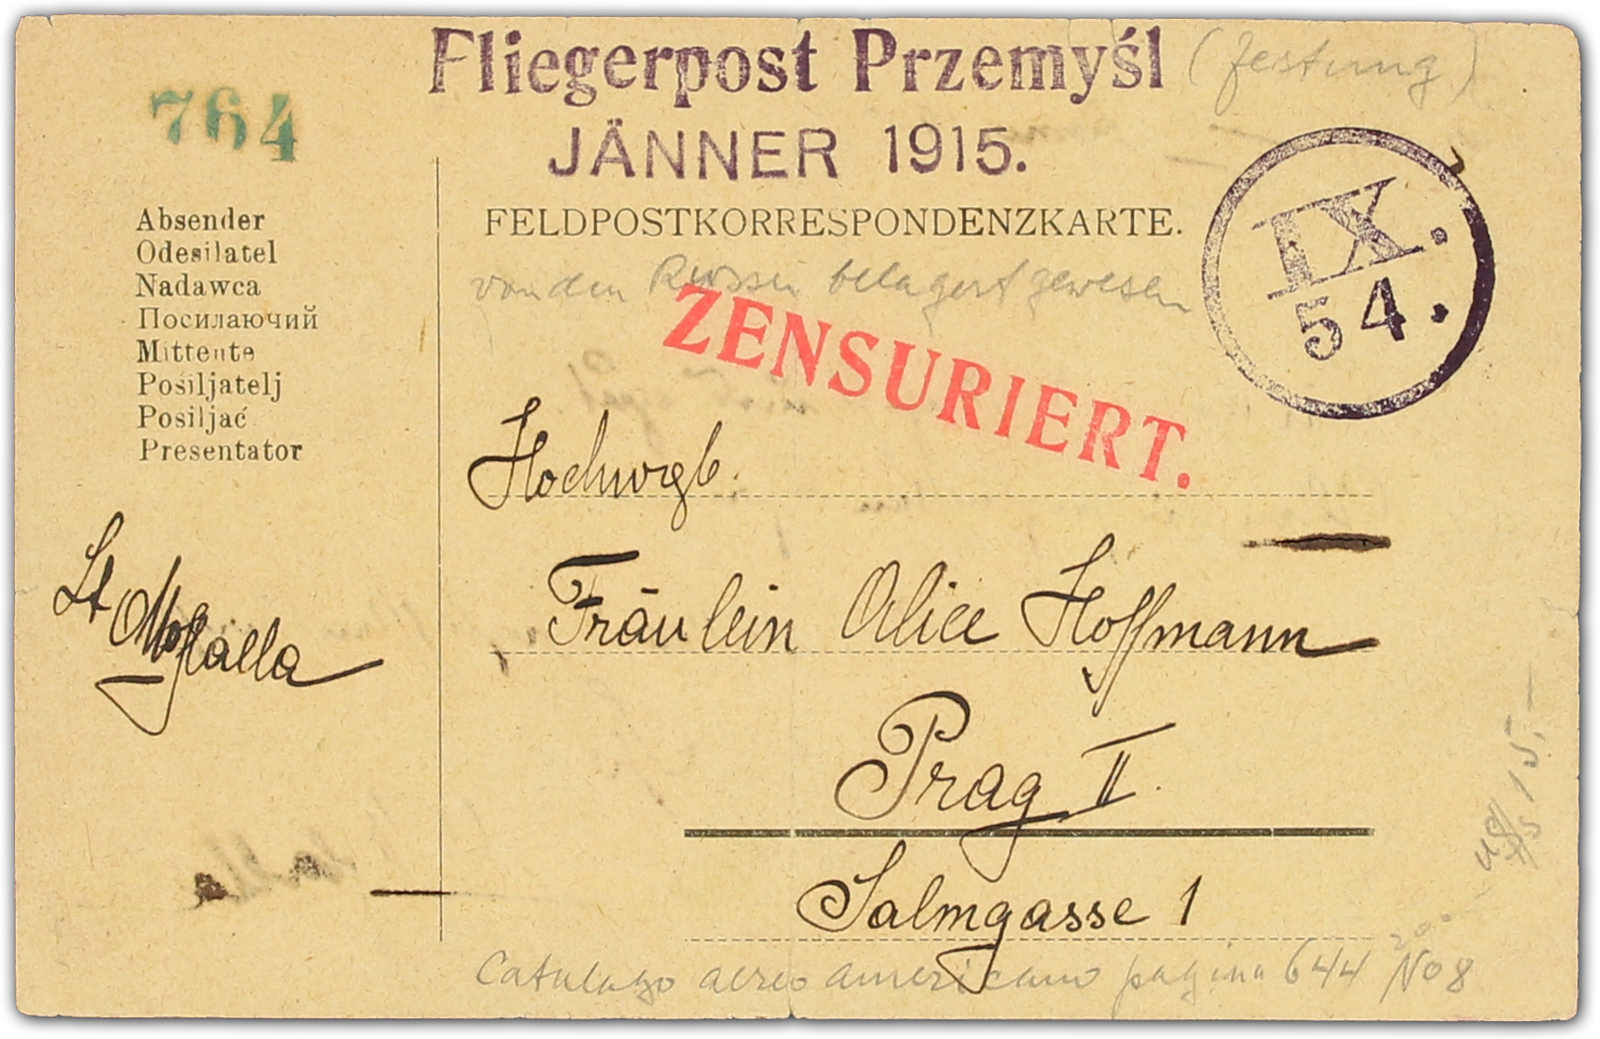 Fliegerpost Przemyśl (Festung)
JÄNNER 1915.
764
FELDPOSTKORRESPONDENZKARTE.
IX.
54.
von den Russen belagert gewesen
ZENSURIERT.
Absender
Odesílatel
Nadawca
Посилаючий
Mittente
Pošiljatelj
Posiljač
Presentator
Hochwgb.
Fräulein Alice Hoffmann
Prag II.
Salmgasse 1
Lt
15.-
Catalogo aereo americano pagina 644 No 8
20.-